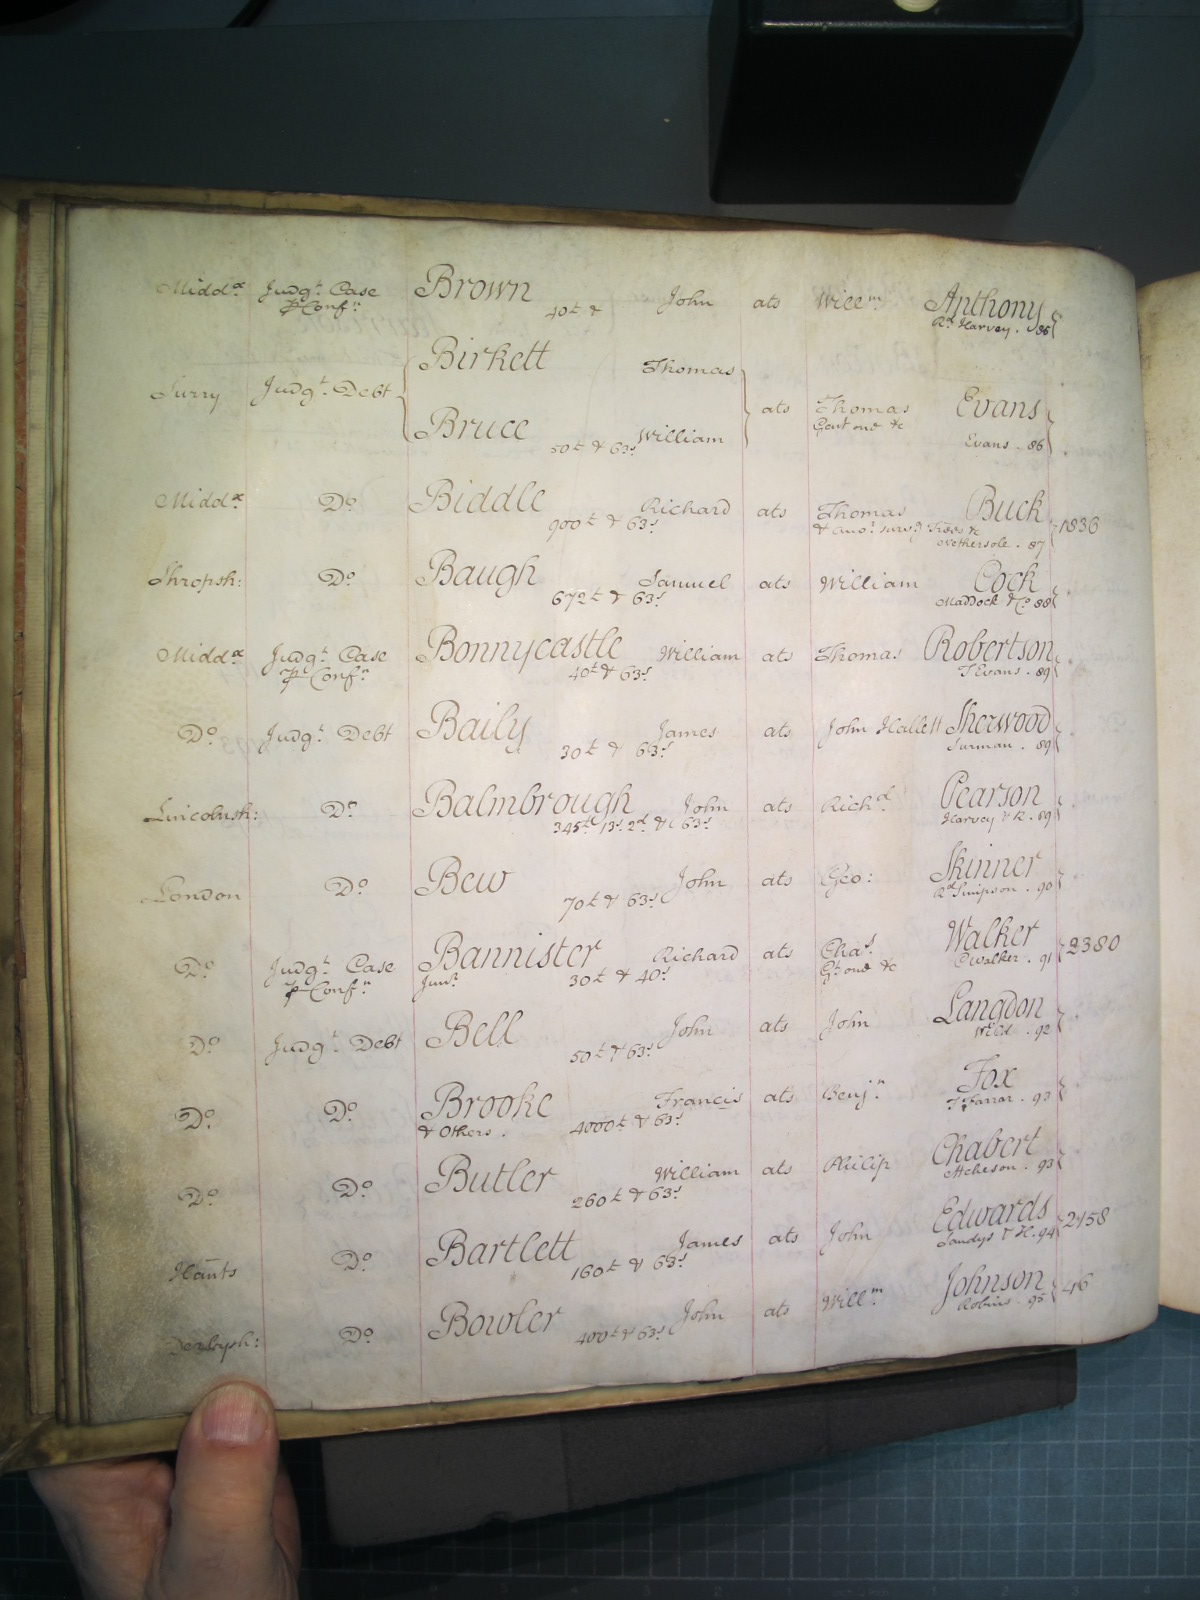 Midd.x Judg.t Case Brown John ats Will.m Anthony
P Conf.n 40£ & R.d Harvey . 85
Birkett Thomas
Surry Judg.t Debt ats Thomas Evans
Bruce William Gent one &c
50£ & 63.s Evans . 86
Midd.x D.o Biddle Richard ats Thomas Buck
900£ & 63.s & ano.r surv.g &c 1836
Nethersole . 87
Shropsh: D.o Baugh Samuel ats William Cock
672£ & 63.s Maddock & C.o 88
Midd.x Judg.t Case Bonnycastle William ats Thomas Robertson
P Conf.n 40£ & 63.s T Evans . 89
D.o Judg.t Debt Baily James ats John Hallett Sherwood
30£ & 63.s Surman . 89
Lincolnsh: D.o Balmbrough John ats Rich.d Pearson
345£ 13.s 2.d & 63.s Harvey & R . 89
London D.o Bew John ats Geo: Skinner
70£ & 63.s R.d Simpson . 90
D.o Judg.t Case Bannister Richard ats Cha.s Walker 2380
P Conf.n Jun.r 30£ & 40.s G.t one &c C Walker . 91
D.o Judg.t Debt Bell John ats John Langdon
50£ & 63.s . 92
D.o D.o Brooke Francis ats Benj.n Fox
& Others . 4000£ & 63.s Farrar . 93
D.o D.o Butler William ats Philip Chabert
260£ & 63.s Atcheson . 93
Hants D.o Bartlett James ats John Edwards 2158
160£ & 63.s Sandys & H . 94
Derbysh: D.o Bowler John ats Will.m Johnson 46
400£ & 63.s Robins . 95